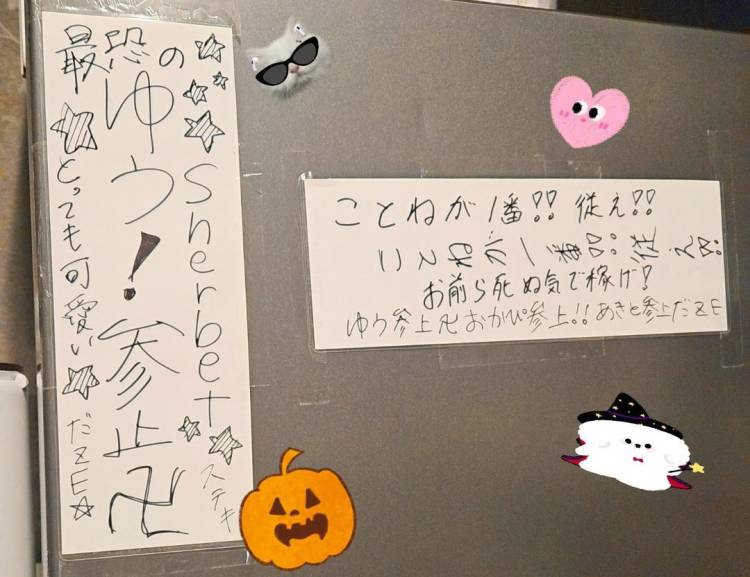 最恐の
ゆう!参上卍
☆☆☆☆sherbet☆☆
ステキ
☆とっても可愛い☆だZE☆
ことねが1番!!従え!!
ことねが1番!!従え!!
お前ら死ぬ気で稼げ!
ゆう参上卍おかぴ参上!!あきと参上だZE